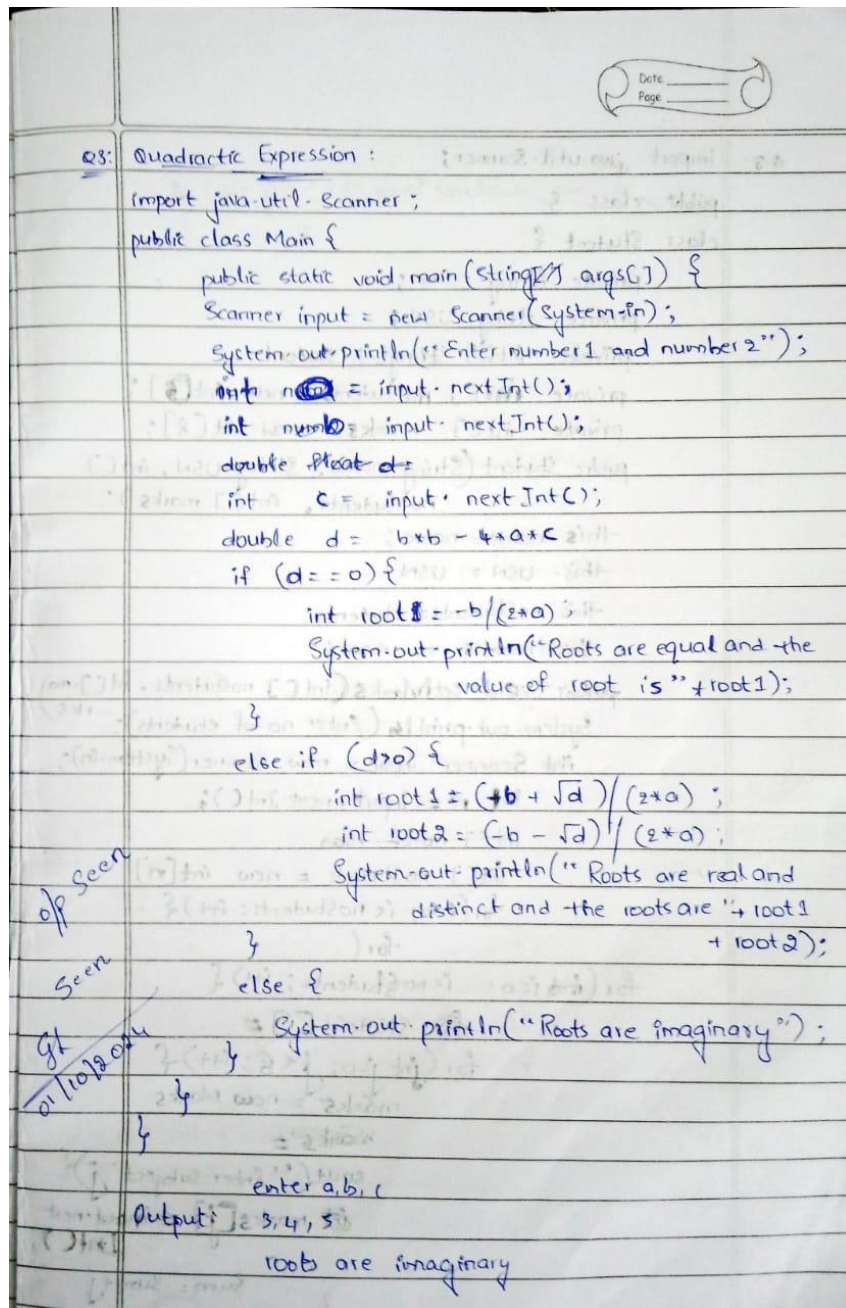 Date
Page
Q3: Quadractic Expression :
import java.util.Scanner ;
public class Main {
public static void main (String args[]) {
Scanner input = new Scanner(System.in) ;
System.out.println("Enter number1 and number2");
int = input.nextInt();
int b = input.nextInt();
double float d=
int c = input.nextInt();
double d = b*b - 4*a*c
if (d==0) {
int root1 = -b/(2*a) ;
System.out.println("Roots are equal and the
value of root is" + root1);
}
else if (d>0) {
int root1 = (-b + √d) / (2*a) ;
int root2 = (-b - √d) / (2*a) ;
System.out.println(" Roots are real and
distinct and the roots are "+ root1
+ root2);
}
else {
System.out.println("Roots are imaginary");
}
}
}
o/p seen
Seen
01/10/2024
enter a, b, c
Output: 3, 4, 5
roots are imaginary